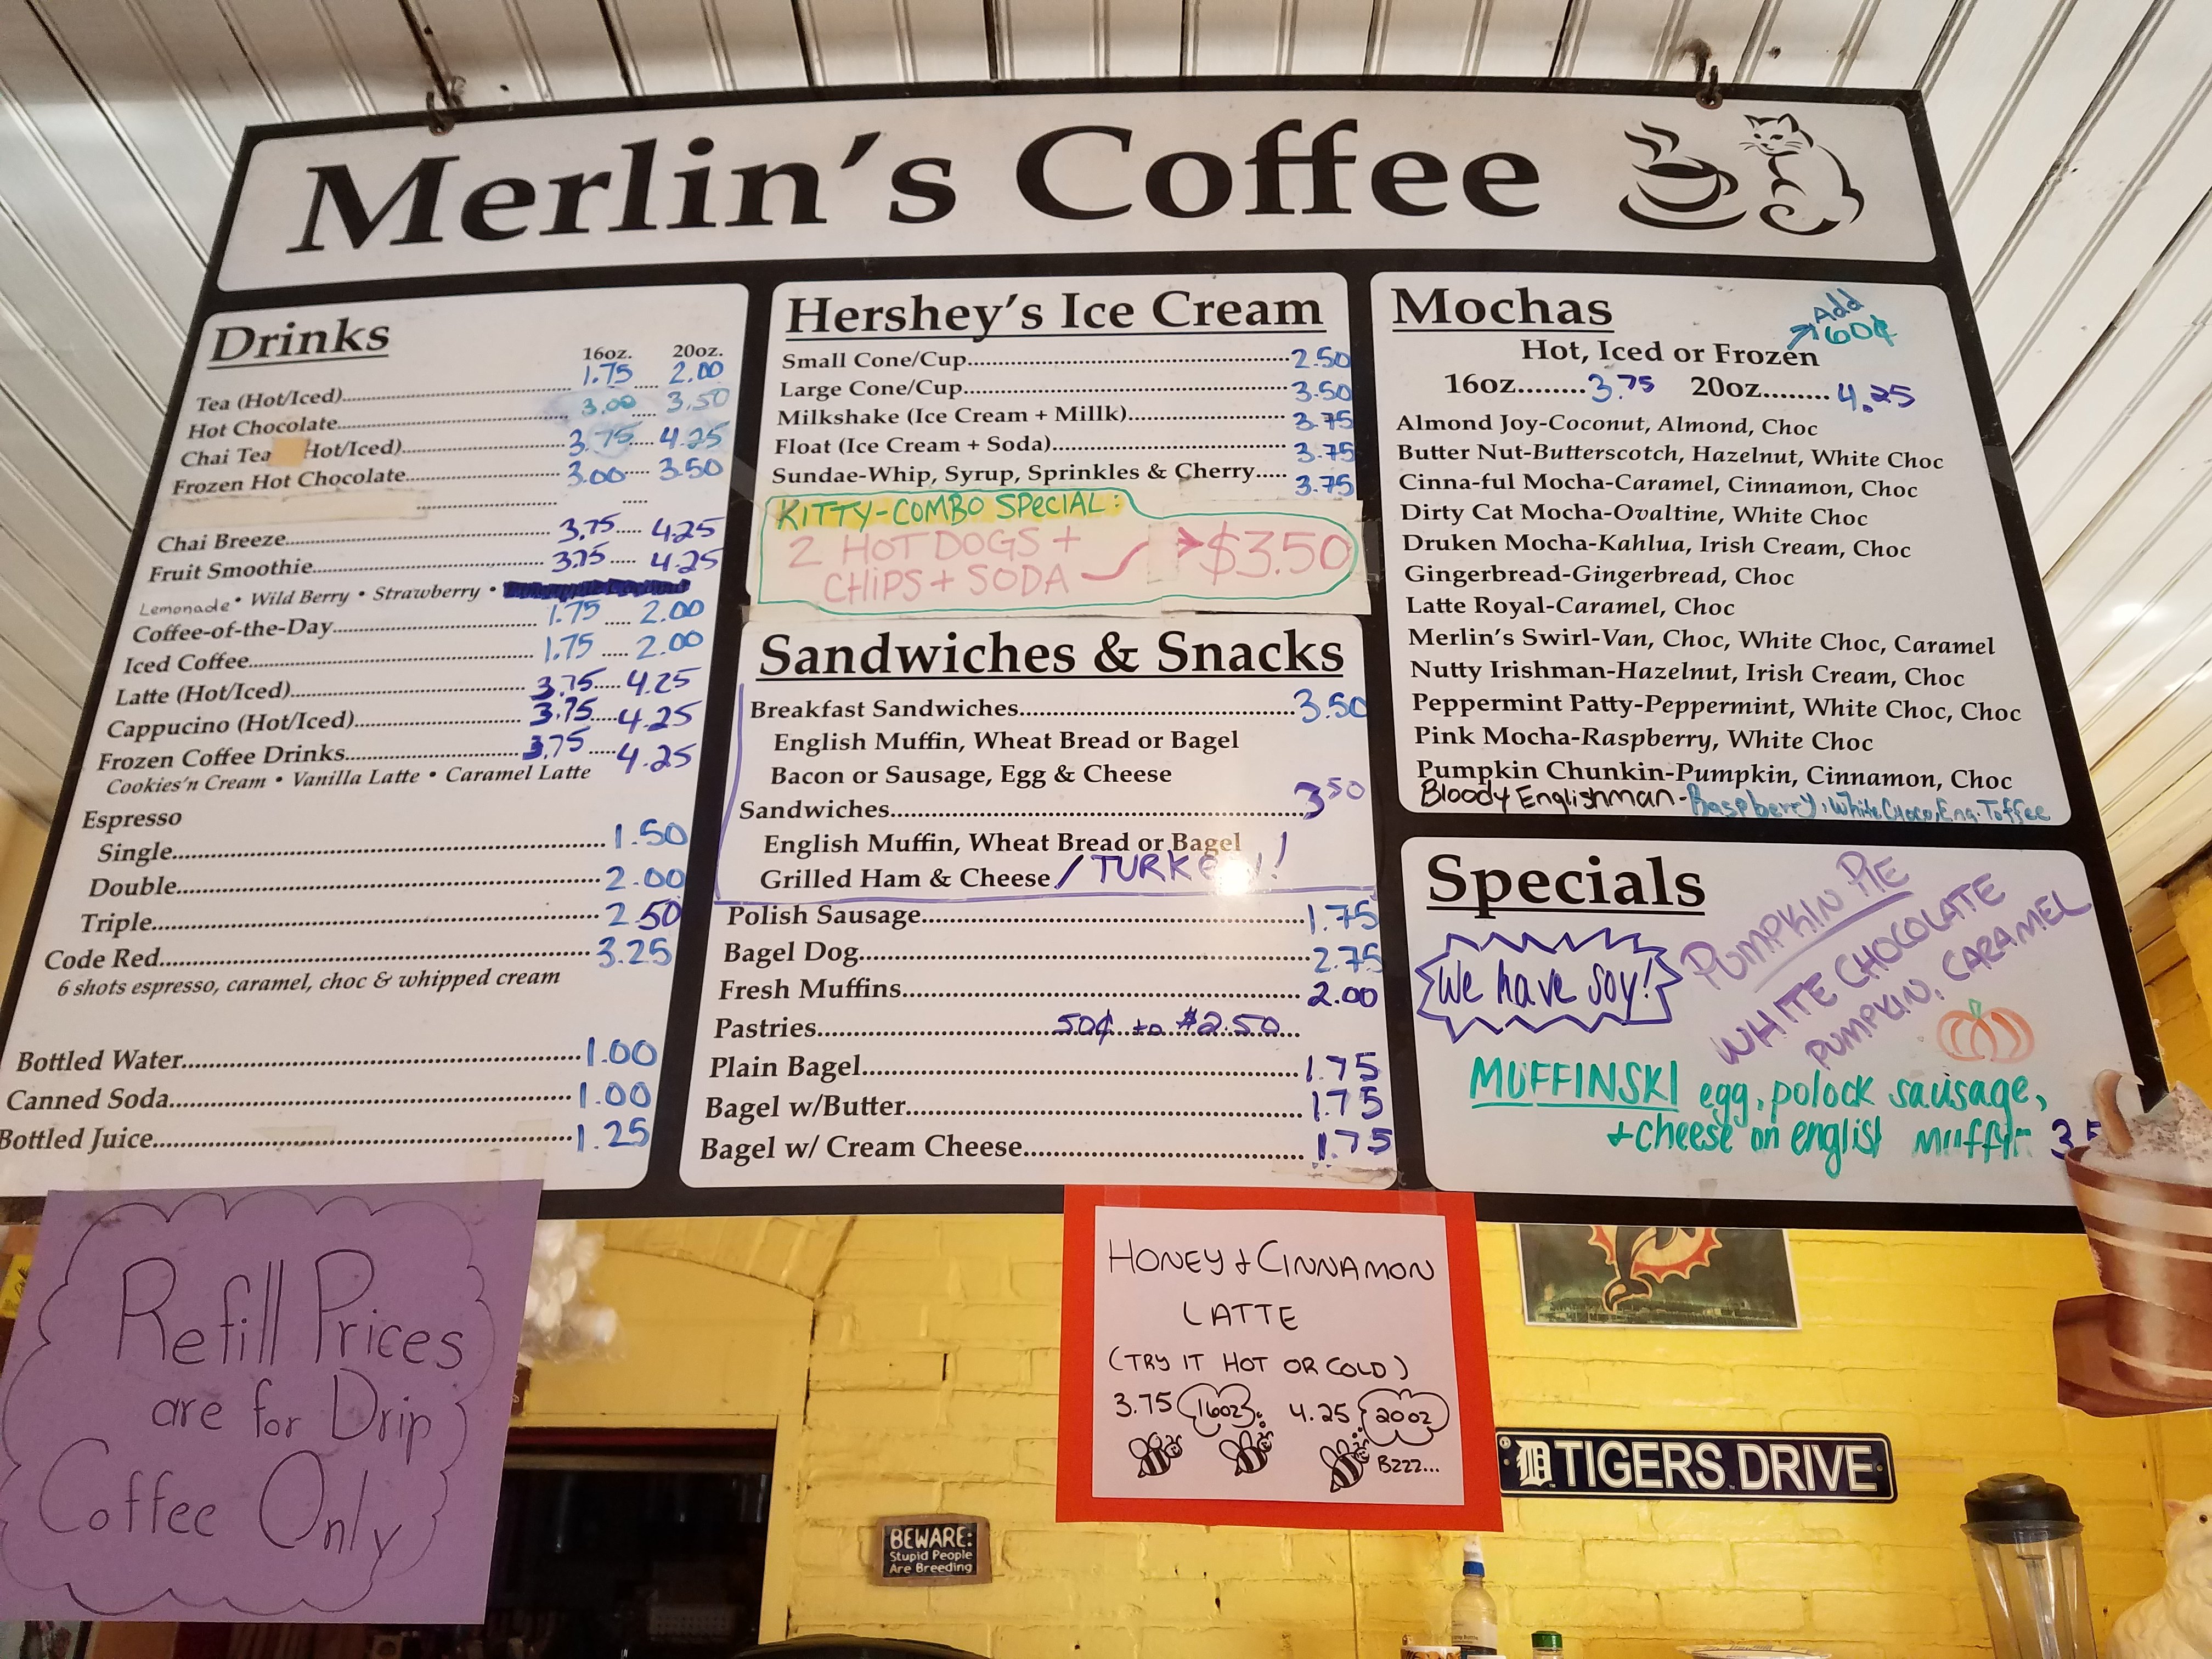 Merlin's Coffee
Drinks
16oz. 20oz.
Tea (Hot/Iced) 1.75 2.00
Hot Chocolate 3.00 3.50
Chai Tea Hot/Iced) 3.75 4.25
Frozen Hot Chocolate 3.00 3.50
Chai Breeze 3.75 4.25
Fruit Smoothie 3.75 4.25
Lemonade • Wild Berry • Strawberry •
Coffee-of-the-Day 1.75 2.00
Iced Coffee 1.75 2.00
Latte (Hot/Iced) 3.75 4.25
Cappucino (Hot/Iced) 3.75 4.25
Frozen Coffee Drinks 3.75 4.25
Cookies'n Cream • Vanilla Latte • Caramel Latte
Espresso
Single 1.50
Double 2.00
Triple 2.50
Code Red 3.25
6 shots espresso, caramel, choc & whipped cream
Bottled Water 1.00
Canned Soda 1.00
Bottled Juice 1.25
Hershey's Ice Cream
Small Cone/Cup 2.50
Large Cone/Cup 3.50
Milkshake (Ice Cream + Millk) 3.75
Float (Ice Cream + Soda) 3.75
Sundae-Whip, Syrup, Sprinkles & Cherry 3.75
KITTY-COMBO SPECIAL:
2 HOT DOGS +
CHIPS + SODA $3.50
Sandwiches & Snacks
Breakfast Sandwiches 3.50
English Muffin, Wheat Bread or Bagel
Bacon or Sausage, Egg & Cheese
Sandwiches 3.50
English Muffin, Wheat Bread or Bagel
Grilled Ham & Cheese / TURKEY!
Polish Sausage 1.75
Bagel Dog 2.75
Fresh Muffins 2.00
Pastries 50¢ to $2.50
Plain Bagel 1.75
Bagel w/Butter 1.75
Bagel w/ Cream Cheese 1.75
Mochas
Add
60¢
Hot, Iced or Frozen
16oz 3.75 20oz 4.25
Almond Joy-Coconut, Almond, Choc
Butter Nut-Butterscotch, Hazelnut, White Choc
Cinna-ful Mocha-Caramel, Cinnamon, Choc
Dirty Cat Mocha-Ovaltine, White Choc
Druken Mocha-Kahlua, Irish Cream, Choc
Gingerbread-Gingerbread, Choc
Latte Royal-Caramel, Choc
Merlin's Swirl-Van, Choc, White Choc, Caramel
Nutty Irishman-Hazelnut, Irish Cream, Choc
Peppermint Patty-Peppermint, White Choc, Choc
Pink Mocha-Raspberry, White Choc
Pumpkin Chunkin-Pumpkin, Cinnamon, Choc
Bloody Englishman-Raspberry, White Choco, Eng. Toffee
Specials
We have soy!
PUMPKIN PIE
WHITE CHOCOLATE
PUMPKIN, CARAMEL
MUFFINSKI egg, polock sausage,
+ cheese on english muffin
Refill Prices
are for Drip
Coffee Only
HONEY & CINNAMON
LATTE
(TRY IT HOT OR COLD)
3.75 16oz 4.25 20oz
BZZZ...
D TIGERS DRIVE
BEWARE:
Stupid People
Are Breeding